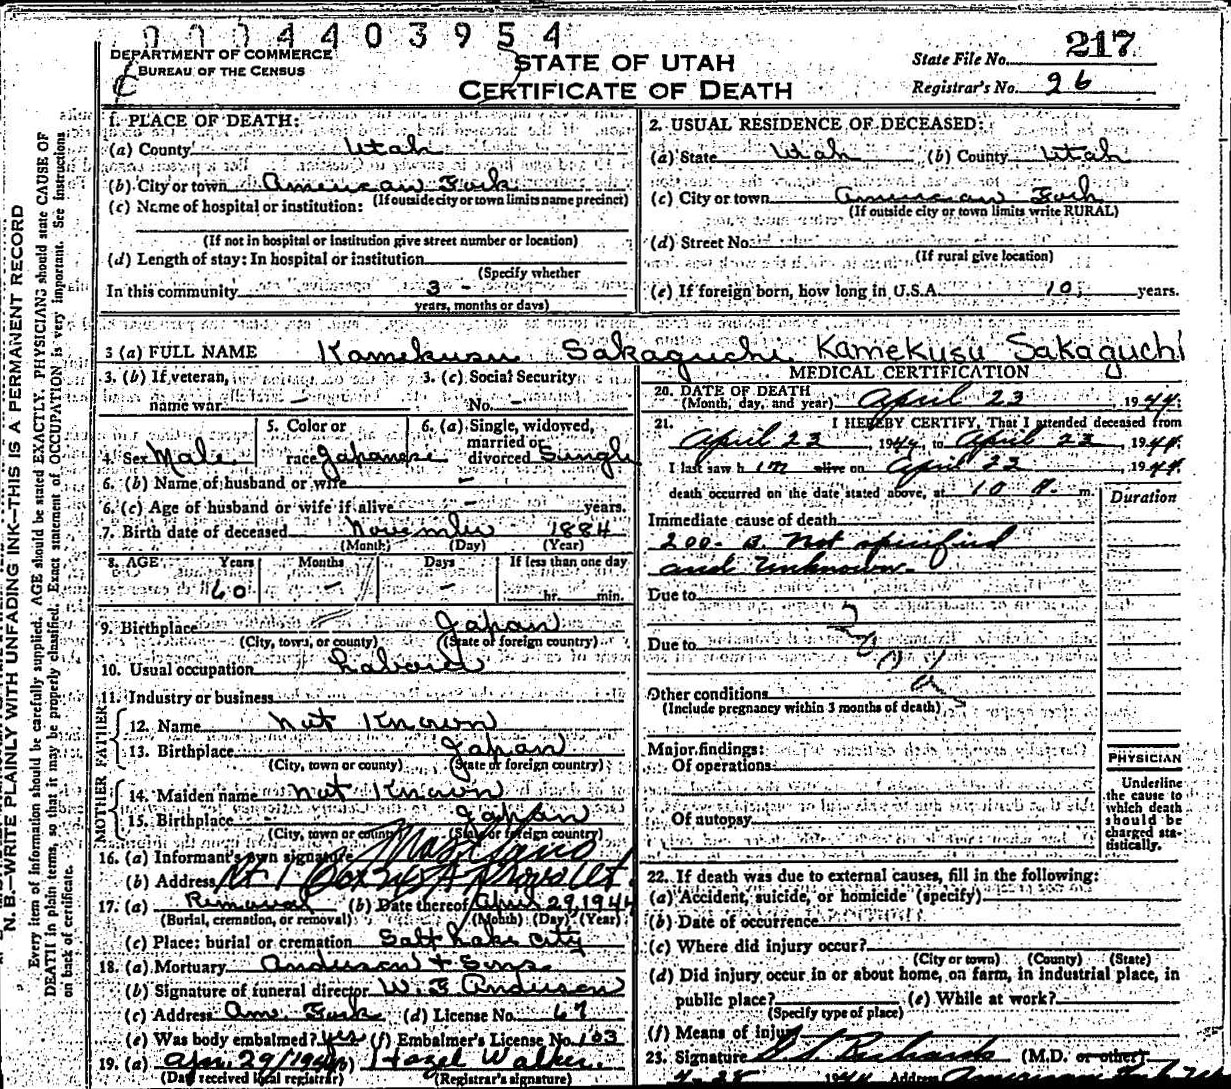 0 0 0 4 4 0 3 9 5 4
DEPARTMENT OF COMMERCE
BUREAU OF THE CENSUS
STATE OF UTAH
CERTIFICATE OF DEATH
State File No. 217
Registrar's No. 26
N. B.—WRITE PLAINLY WITH UNFADING INK—THIS IS A PERMANENT RECORD
Every item of information should be carefully supplied. AGE should be stated EXACTLY. PHYSICIANS should state CAUSE OF
DEATH in plain terms, so that it may be properly classified. Exact statement of OCCUPATION is very important. See instructions
on back of certificate.
1. PLACE OF DEATH:
(a) County Utah
(b) City or town American Fork
(If outside city or town limits name precinct)
(c) Name of hospital or institution:
(If not in hospital or institution give street number or location)
(d) Length of stay: In hospital or institution
(Specify whether
In this community 3 -
years, months or days)
2. USUAL RESIDENCE OF DECEASED:
(a) State Utah (b) County Utah
(c) City or town American Fork
(If outside city or town limits write RURAL)
(d) Street No.
(If rural give location)
(e) If foreign born, how long in U.S.A. 10 years.
3 (a) FULL NAME Kamekusu Sakaguchi Kamekusu Sakaguchi
3. (b) If veteran, name war - 3. (c) Social Security No. -
4. Sex Male 5. Color or race Japanese 6. (a) Single, widowed, married or divorced Single
6. (b) Name of husband or wife -
6. (c) Age of husband or wife if alive - years.
7. Birth date of deceased November 1884
(Month) (Day) (Year)
8. AGE Years Months Days If less than one day
60 - - hr. min.
9. Birthplace Japan
(City, town, or county) (State or foreign country)
10. Usual occupation Laborer
11. Industry or business
FATHER
12. Name Not Known
13. Birthplace Japan
(City, town or county) (State or foreign country)
MOTHER
14. Maiden name Not Known
15. Birthplace Japan
(City, town or county) (State or foreign country)
16. (a) Informant's own signature
(b) Address Rt 1 Box Provo Ut.
17. (a) Removal (b) Date thereof April 29, 1944
(Burial, cremation, or removal) (Month) (Day) (Year)
(c) Place: burial or cremation Salt Lake City
18. (a) Mortuary Anderson & Sons
(b) Signature of funeral director W. E. Anderson
(c) Address Am. Fork (d) License No. 67
(e) Was body embalmed? Yes (f) Embalmer's License No. 103
19. (a) Apr. 29/1944 (b) Hazel Walker
(Date received local registrar) (Registrar's signature)
MEDICAL CERTIFICATION
20. DATE OF DEATH
(Month, day, and year) April 23, 1944
21. I HEREBY CERTIFY, That I attended deceased from
April 23 1944, to April 23 1944.
I last saw him alive on April 22 1944
death occurred on the date stated above, at 10 P. m.
Duration
Immediate cause of death
200-B. Not specified
and Unknown-
Due to
Due to
Other conditions
(Include pregnancy within 3 months of death)
Major findings:
Of operations
Of autopsy
PHYSICIAN
Underline
the cause to
which death
should be
charged sta-
tistically.
22. If death was due to external causes, fill in the following:
(a) Accident, suicide, or homicide (specify)
(b) Date of occurrence
(c) Where did injury occur?
(City or town) (County) (State)
(d) Did injury occur in or about home, on farm, in industrial place, in
public place? (e) While at work?
(Specify type of place)
(f) Means of injury
23. Signature Richards (M.D. or other)
1944 Address American Fork